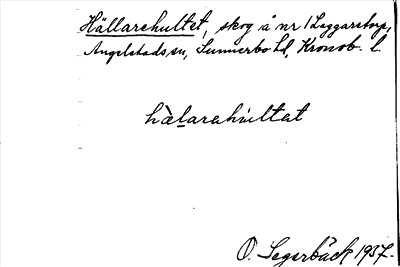 Hällarehultet, skog å nr 1 Laggarstorp,
Angelstads sn, Sunnerbo hd, Kronob. l.
hàlarahultat
O. Segerbäck 1937.